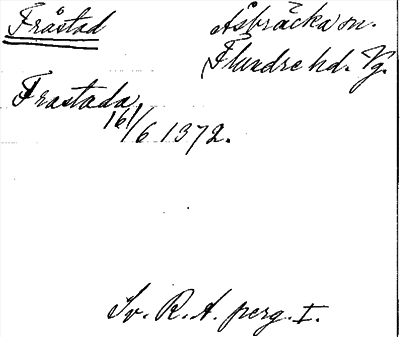 Fråstad
Åsbräcka sn.
Flundre hd. Vg.
Frastada
16/6 1372.
Sv. R. A. perg. I.